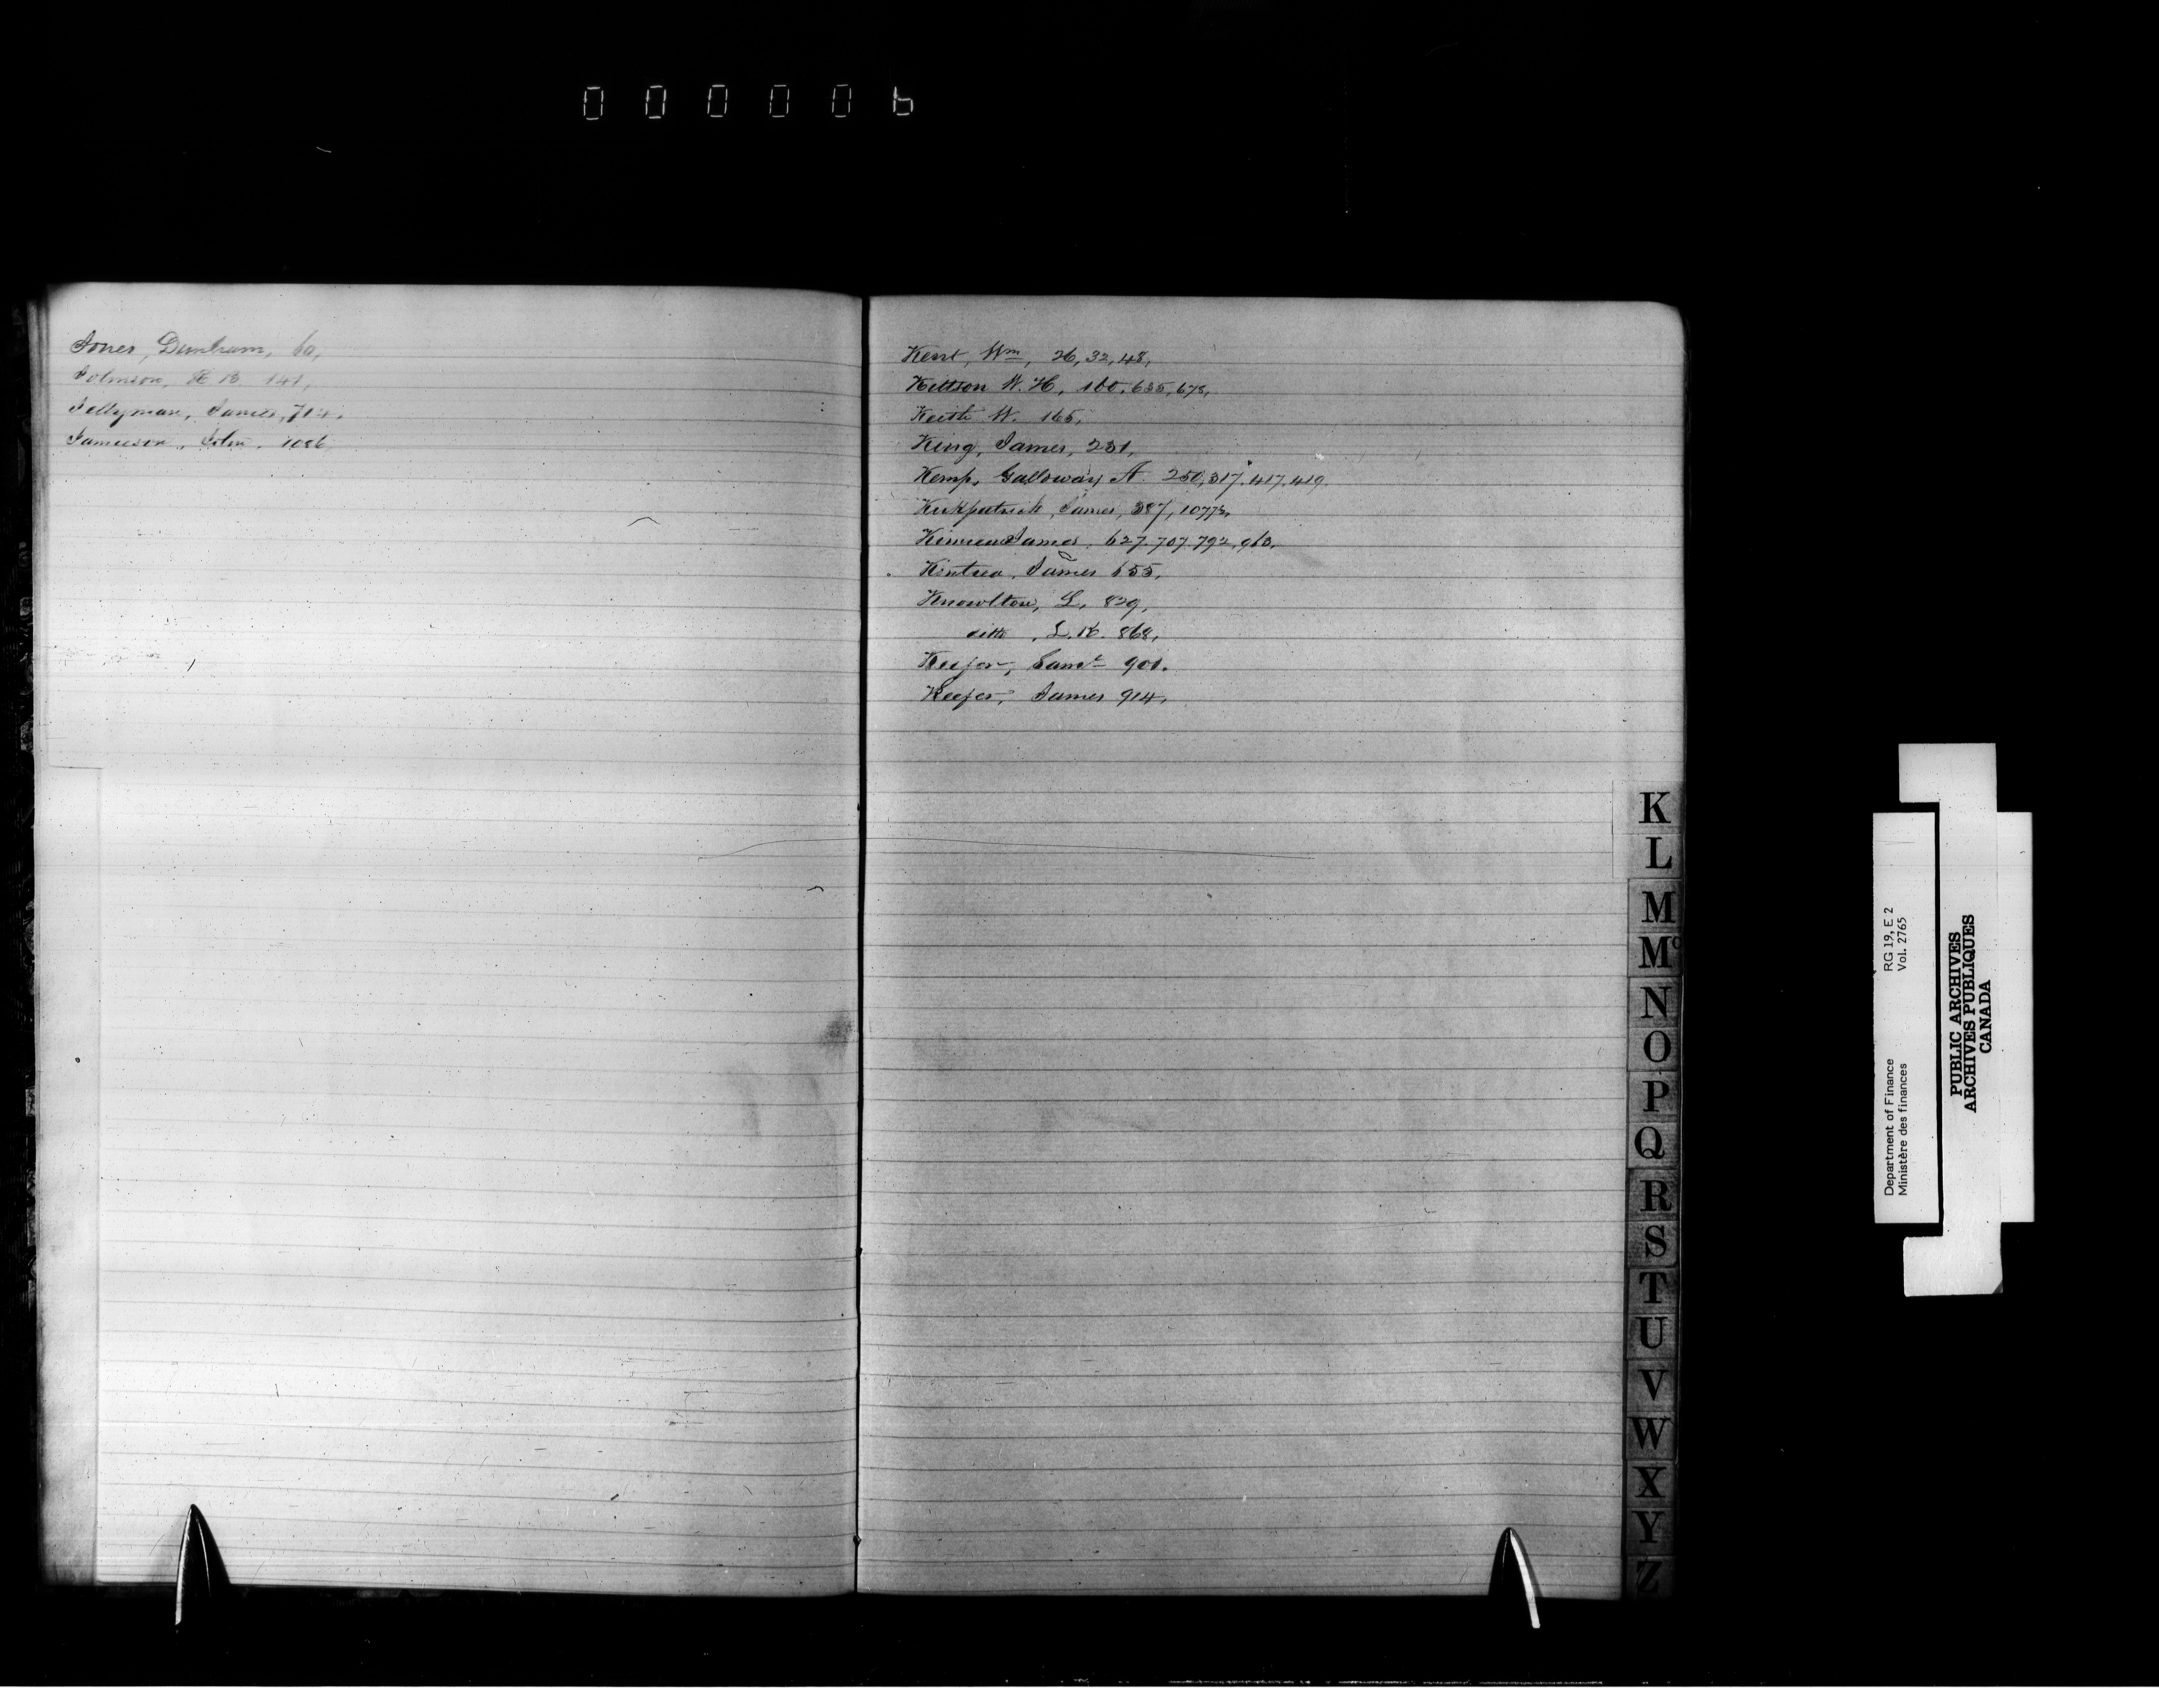 000006
Jones, Dunham, 60,
Johnson, H. B. 141,
Jellyman, James, 712,
Jamieson, John. 1086,
Kent, Wm, 26, 32, 48,
Kittson W. H, 160, 635, 678,
Keith W. 165,
King, James, 231,
Kemp, Galloway A. 250, 317, 417, 419.
Kirkpatrick, James, 387, 1077½,
James. 627. 707. 792, 963,
Kintrea, James 655,
Knowlton, L, 829,
ditto , L. K. 868,
Keefer, Saml 901.
Keefer, James 914,
K
L
M
Mc
N
O
P
Q
R
S
T
U
V
W
X
Y
Z
Department of Finance RG 19, E 2
Ministère des finances Vol. 2765
PUBLIC ARCHIVES
ARCHIVES PUBLIQUES
CANADA